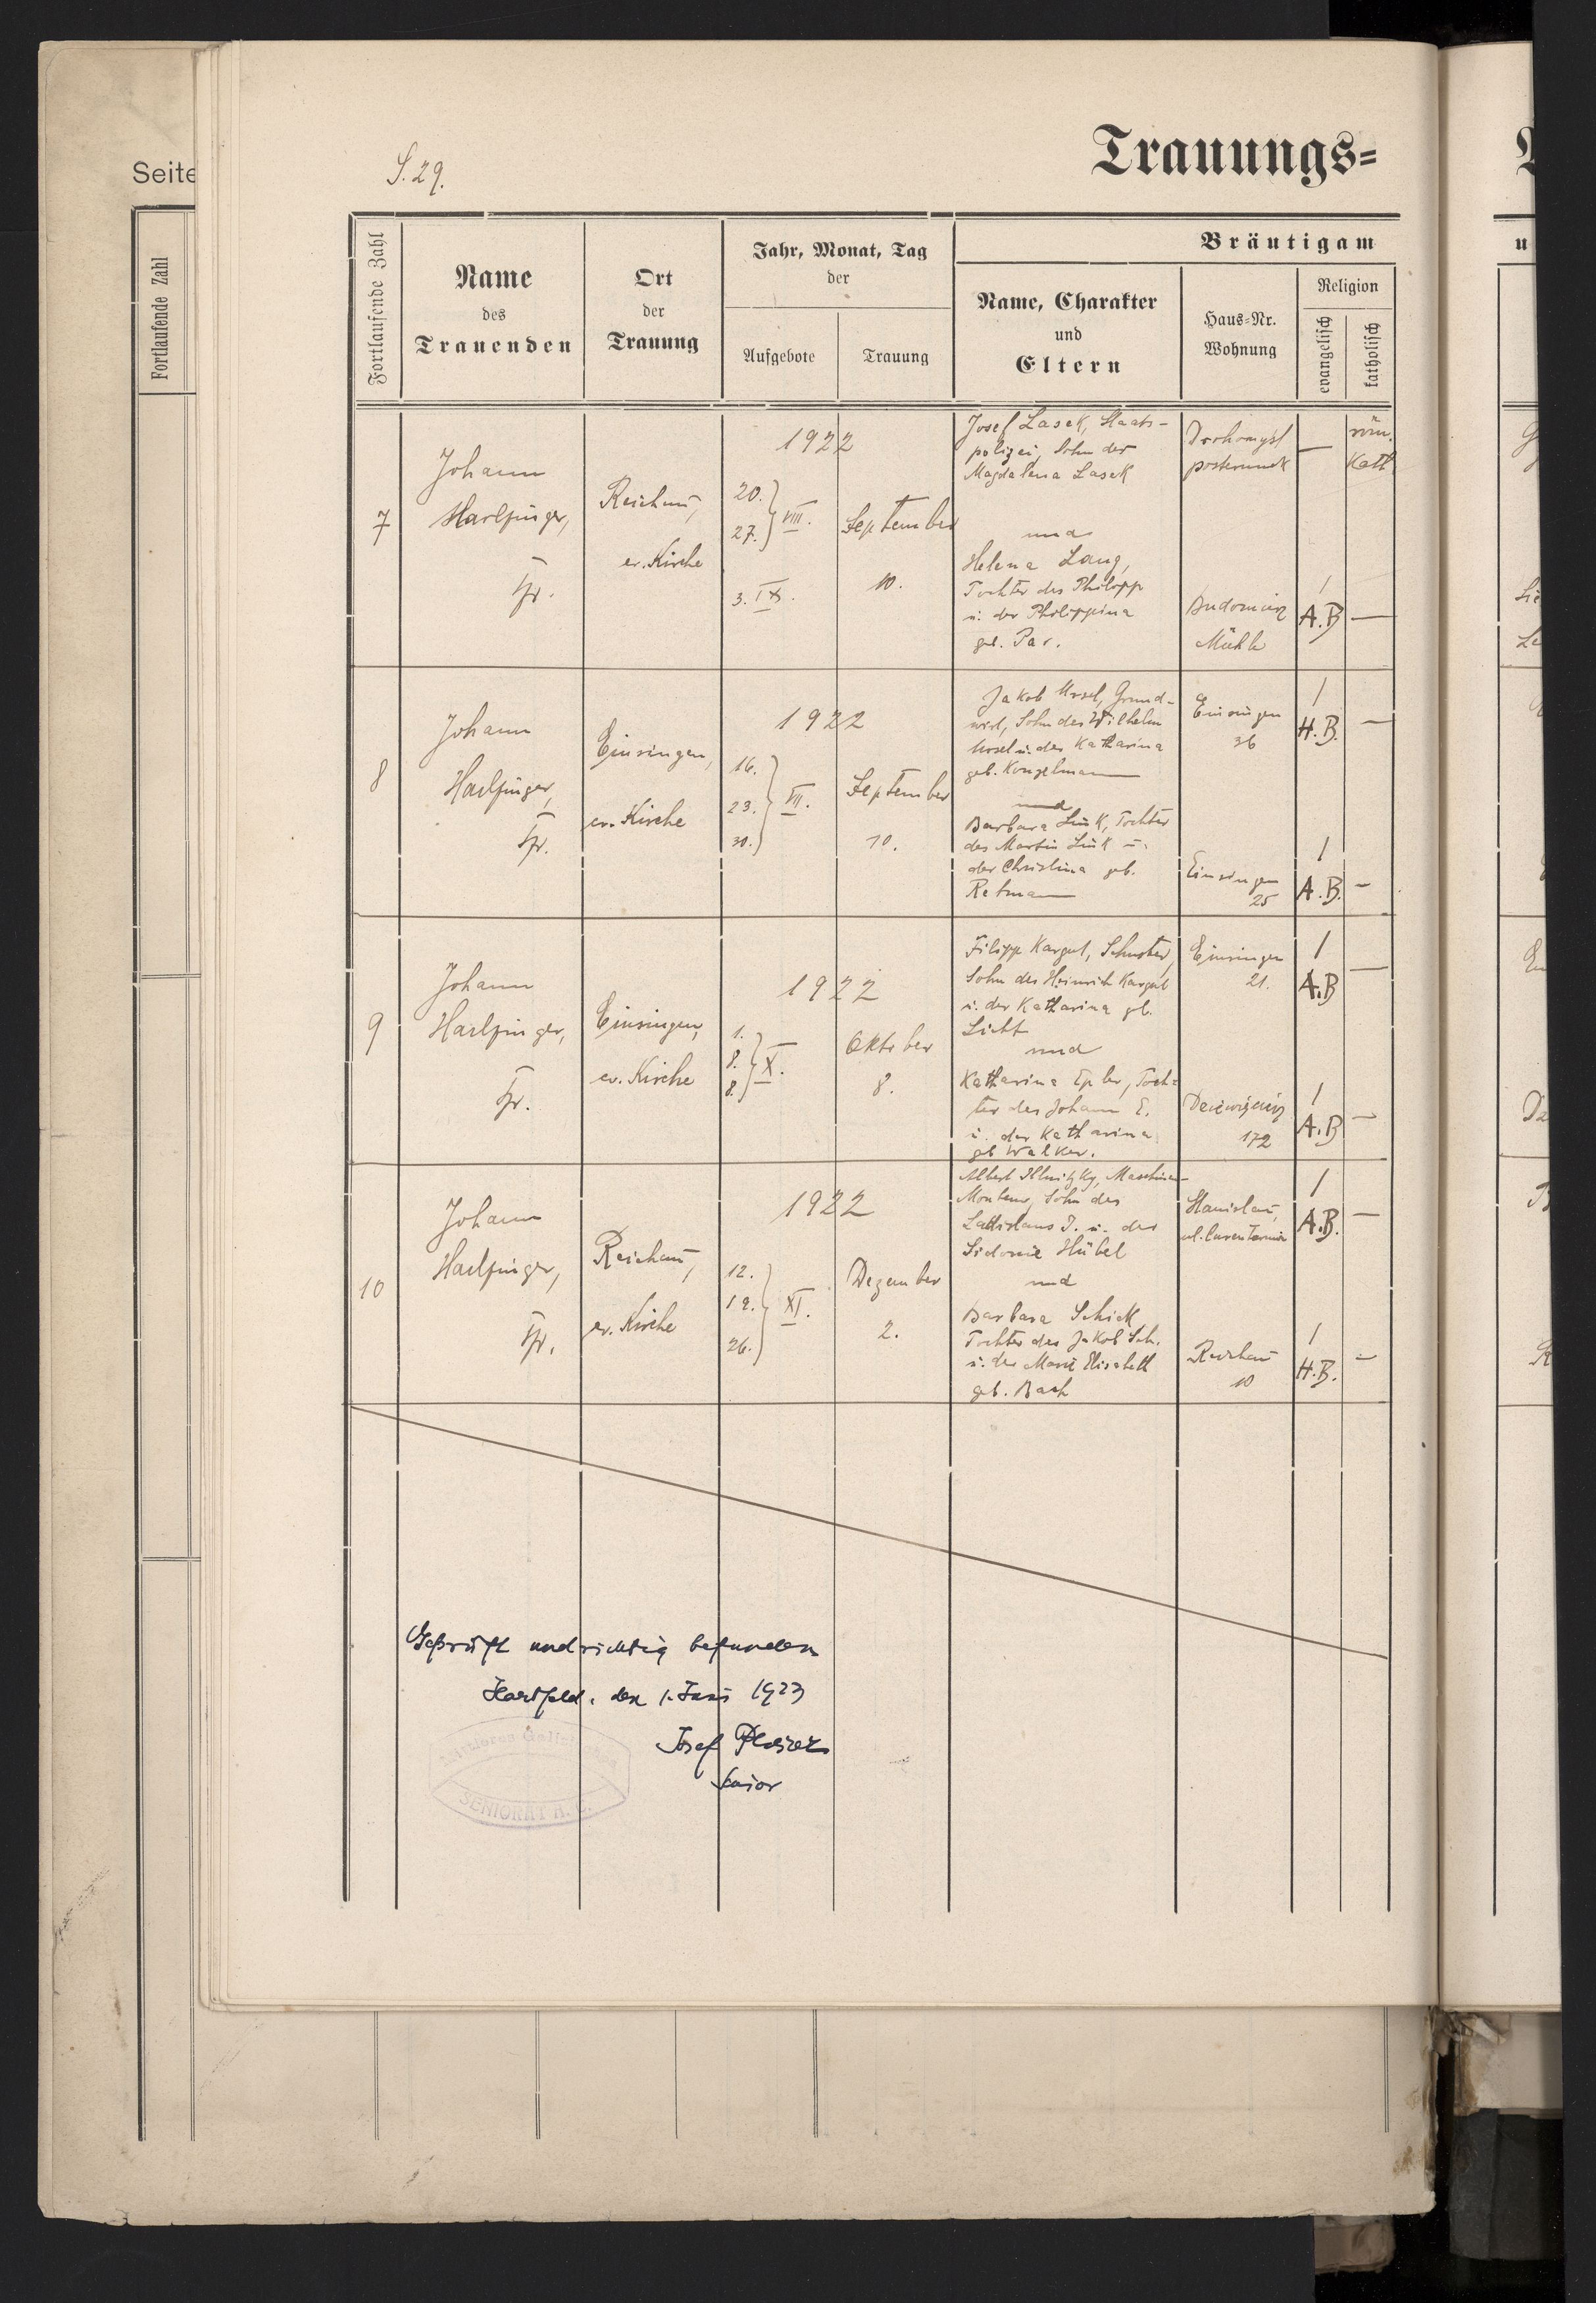 Seite
Fortlaufende Zahl
S. 29.
Trauungs=
Fortlaufende Zahl
Name
des
Trauenden
Ort
der
Trauung
Jahr, Monat, Tag
der
Aufgebote
Trauung
Bräutigam
Name, Charakter
und
Eltern
Haus=Nr.
Wohnung
Religion
evangelisch
katholisch
7
Johann
Harlfinger,
Pfr.
Reichau,
ev. Kirche
1922
20.
27. VIII.
3. IX.
September
10.
Josef Lasek, Staats-
polizei, Sohn der
Magdalena Lasek
und
Helena Lang,
Tochter des Philipp
u. der Philippina
geb. Par.
Drohomysl
posterunek
Mühle
—
röm.
Kath
/
A.B
—
8
Johann
Harlfinger,
Pfr.
Einsingen,
ev. Kirche
1922
16.
23. VII.
30.
September
10.
Jakob Ursel, Grund-
wirt, Sohn des Wilhelm
Ursel u. der Katharina
geb. Konzelmann
und
Barbara Link, Tochter
des Martin Link u.
der Christina geb.
Retman
Einsingen
36
Einsingen
25
/
H.B.
—
/
A.B.
—
9
Johann
Harlfinger,
Pfr.
Einsingen,
ev. Kirche
1922
1.
8. X.
8.
Oktober
8.
Filipp Kargul, Schuster,
Sohn des Heinrich Kargul
u. der Katharina gb.
Licht
und
Katharina Epler, Toch=
ter des Johann E.
u. der Katharina
geb Walker.
Einsingen
21.
172
/
A.B
—
/
A.B
—
10
Johann
Harlfinger,
Pfr.
Reichau,
ev. Kirche
1922
12.
19. XI.
26.
Dezember
2.
Albert Ilnitzky, Maschinen-
Monteur, Sohn des
Ladislaus I. u. der
Sidonie Hübel
und
Barbara Schick
Tochter des Jakob Sch.
u. der Marie Elisabeth
geb. Bach
Stanislau,
Reichau
10
/
A.B.
—
/
H.B.
—
Geprüft und richtig befunden
Hartfeld, den 1. Juni 1923
Josef
Senior
SENIORAT A.